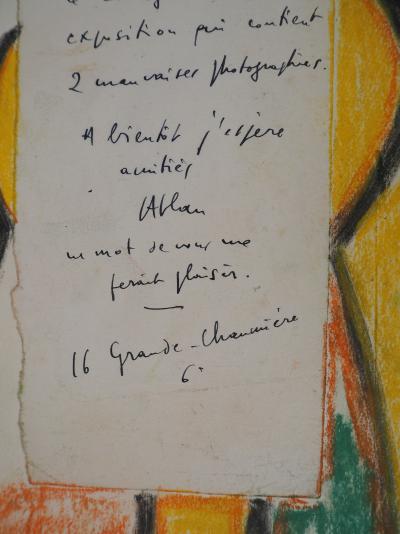 exposition qui contient
2 mauvaises photographies.
A bientôt j'espère
amitiés
Atlan
un mot de vous me
ferait plaisir.
16 Grande-Chaumière
6e